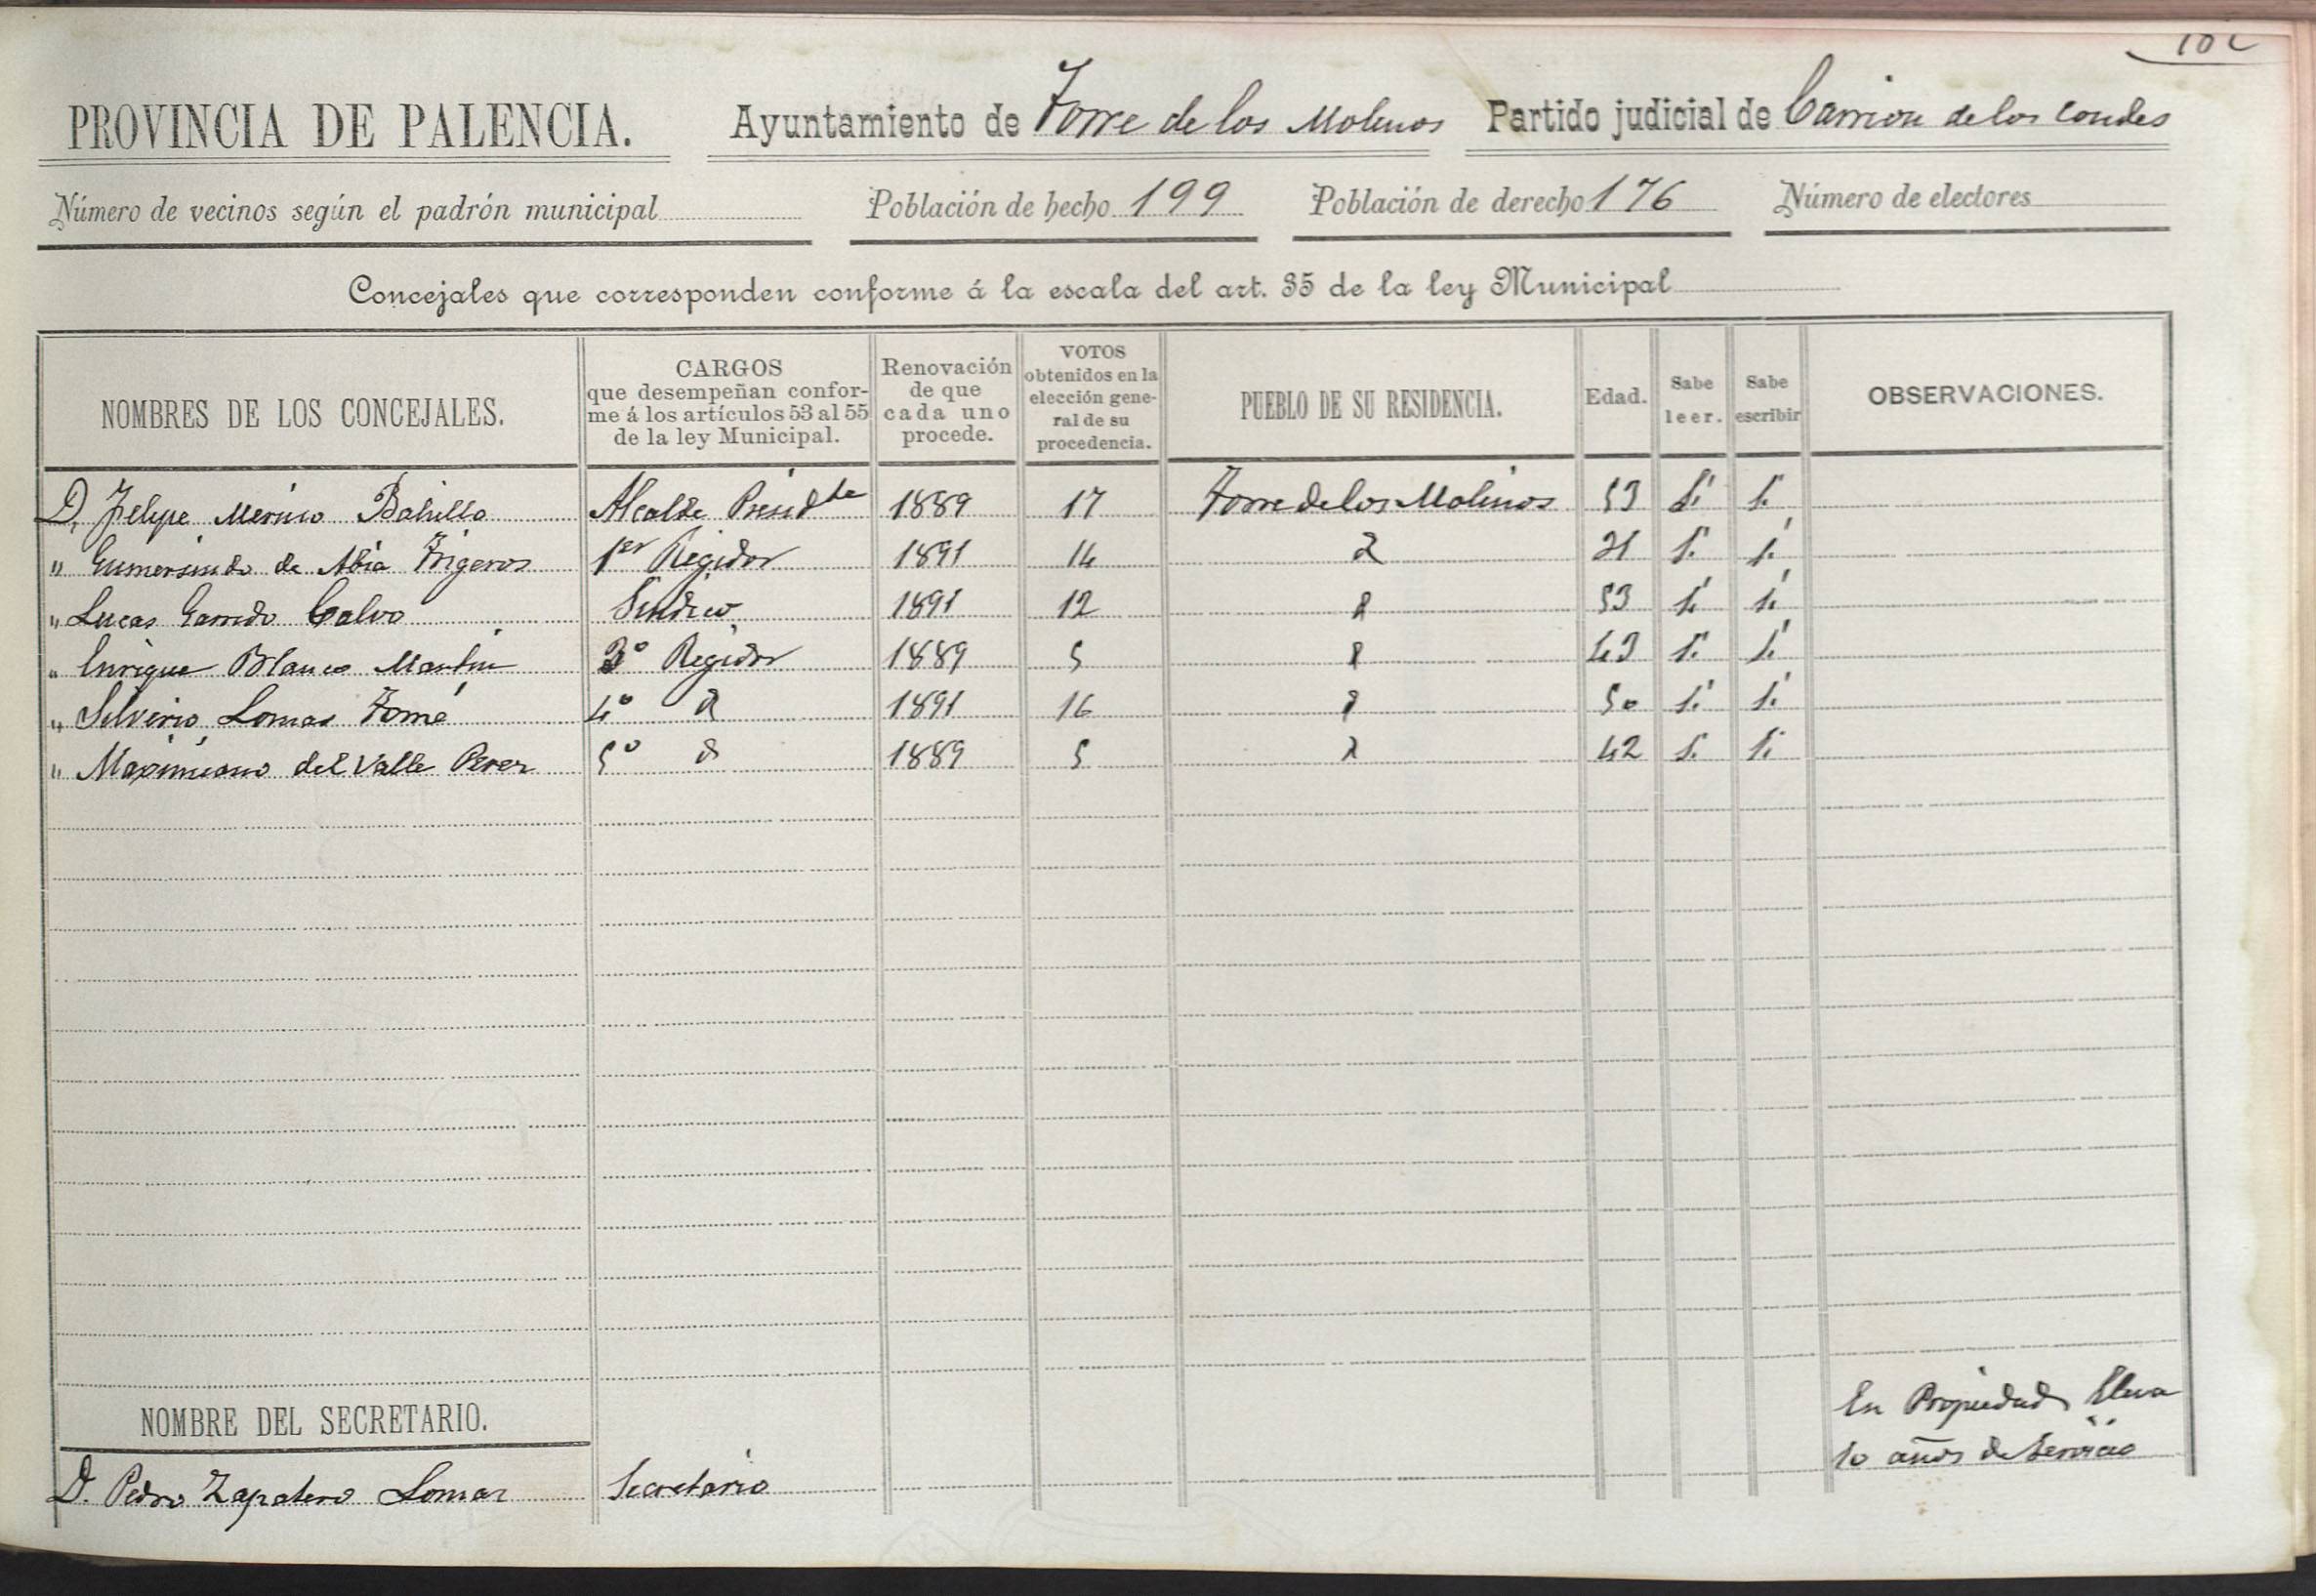 182
PROVINCIA DE PALENCIA. Ayuntamiento de Torre de los Molinos Partido judicial de Carrion de los Condes
Número de vecinos según el padrón municipal Población de hecho 199 Población de derecho 176 Número de electores
Concejales que corresponden conforme á la escala del art. 35 de la ley Municipal
NOMBRES DE LOS CONCEJALES. CARGOS que desempeñan conforme á los artículos 53 al 55 de la ley Municipal. Renovación de que cada uno procede. VOTOS obtenidos en la elección general de su procedencia. PUEBLO DE SU RESIDENCIA. Edad. Sabe leer. Sabe escribir OBSERVACIONES.
D. Felipe Merino Bahillo Alcalde Presidte 1889 17 Torre de los Molinos 53 Sí Sí
" Gumersindo de Abia Frigeros 1er Regidor 1891 14 31 Sí Sí
" Lucas Garrido Calvo Síndico 1891 12 53 Sí Sí
" Enrique Blanco Martin 3º Regidor 1889 5 43 Sí Sí
" Silverio Lomas Tomé 4º 1891 16 50 Sí Sí
" Maximiano del Valle Perez 5º 1889 5 42 Sí Sí
NOMBRE DEL SECRETARIO.
D. Pedro Zapatero Lomas Secretario En Propiedad lleva
10 años de Servicio